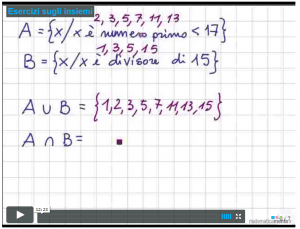 Esercizi sugli insiemi
2, 3, 5, 7, 11, 13
A = {x/x è numero primo < 17}
1, 3, 5, 15
B = {x/x è divisore di 15}
A ∪ B = {1,2,3,5,7,11,13,15}
A ∩ B =